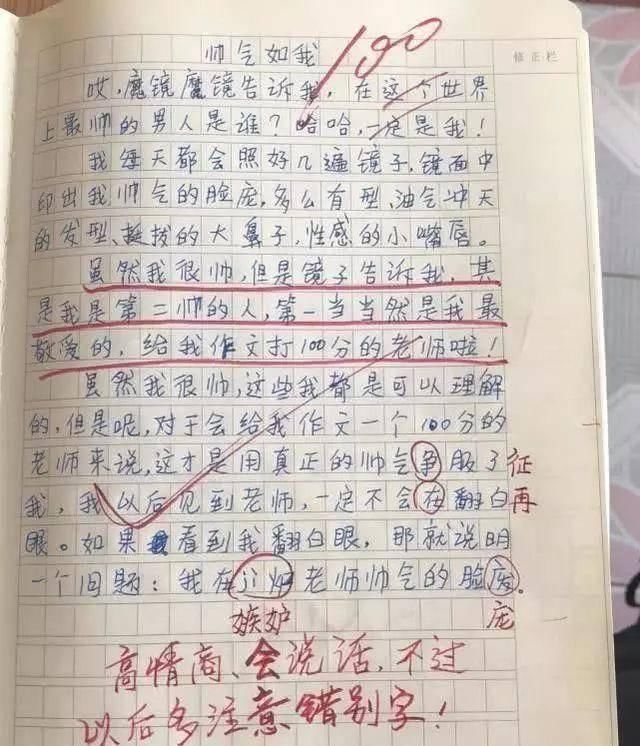 帅气如我
100
修正栏
哎,魔镜魔镜告诉我,在这个世界
上最帅的男人是谁?哈哈,一定是我!
我每天都会照好几遍镜子,镜面中
印出我帅气的脸庞,多么有型、油气冲天
的发型、挺拔的大鼻子,性感的小嘴唇。
虽然我很帅,但是镜子告诉我,其
是我是第二帅的人,第一当当然是我最
敬爱的,给我作文打100分的老师啦!
虽然我很帅,这些我都是可以理解
的,但是呢,对于会给我作文一个100分的
老师来说,这才是用真正的帅气争服了 征
我,我以后见到老师,一定不会在翻白 再
眼。如果看到我翻白眼,那就说明
一个问题:我在老师帅气的脸。
嫉妒 庞
高情商、会说话,不过
以后多注意错别字!